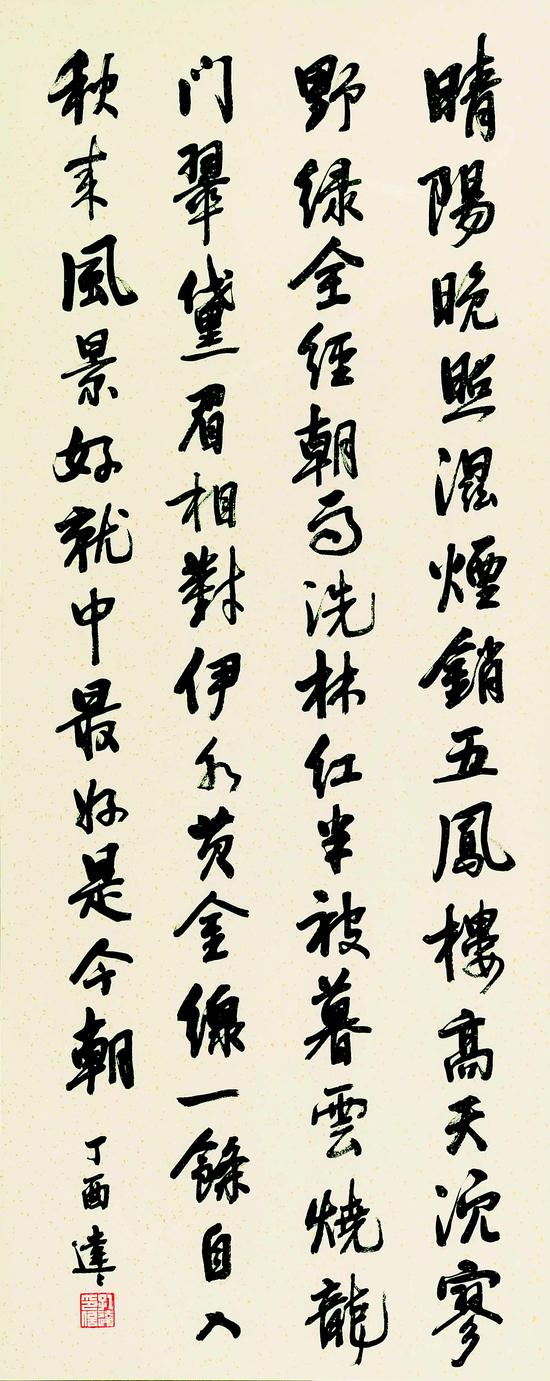 晴陽晚照濕煙銷五鳳樓高天泬寥
野绿全經朝雨洗林红半被暮雲燒龍
门翠黛眉相對伊水黄金線一條自入
秋来風景好就中最好是今朝
丁酉達